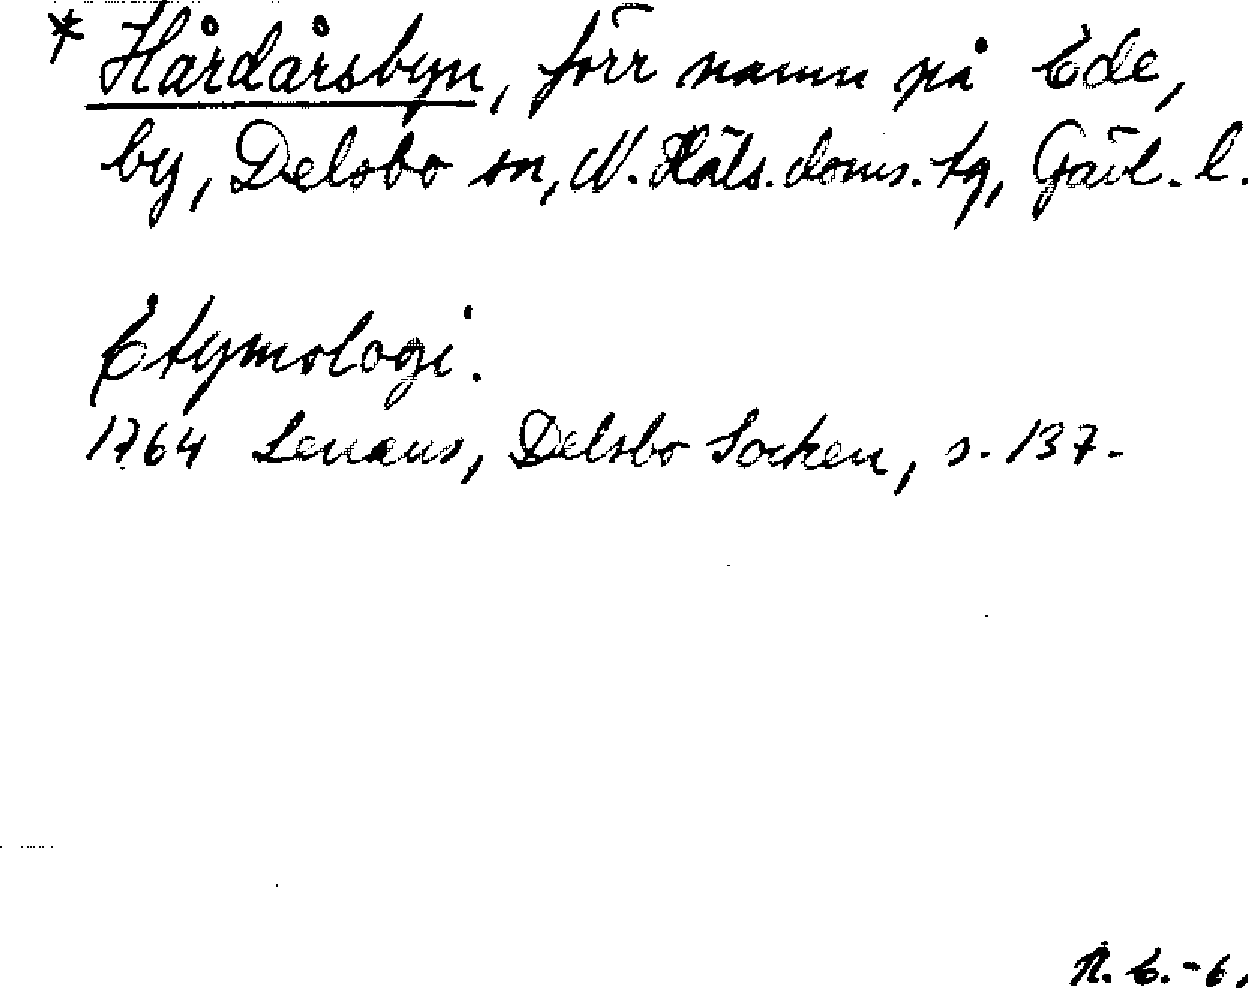 * Hårdårsbyn, förr namn på Ede,
by, Delsbo sn, N. Häls. doms. tg, Gävl. l.
Etymologi.
1764 Lenæus, Delsbo Socken, s. 137.